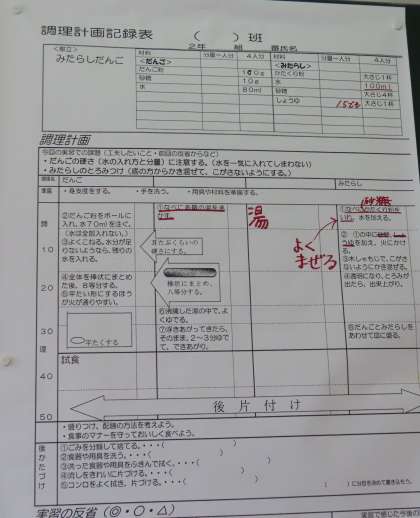 調理計画記録表 （　　）班
2年　　組　　番氏名
＜献立＞
みたらしだんご
材料　分量一人分　4人分
＜だんご＞
だんご粉　100g
砂糖　10g
水　80ml
材料　分量一人分　4人分
＜みたらし＞
かたくり粉　大さじ1杯
水　100ml
砂糖　大さじ4杯
しょうゆ　大さじ1杯
調理計画
今回の実習での課題（工夫したいこと・前回の反省からなど）
・だんごの硬さ（水の入れ方と分量）に注意する。（水を一気に入れてしまわない）
・みたらしのとろみつけ（底の方からかき混ぜて、こがさないようにする。）
だんご
みたらし
準備
・身支度をする。　・手を洗う。　・用具や材料を準備する。
調
10
20
30
理
40
50
②だんご粉をボールに
入れ、水70mlを注ぐ。
（水は全部入れない。）
③よくこねる。水分が足
りないようなら、残りの
水を入れる。
④全体を棒状にまとめ
た後、8等分する。
⑤平たい形にするほう
が火が通りやすい。
平たくする
耳たぶくらいの
硬さにする。
棒状にまとめ、
八等分する。
⑥沸騰した湯の中で、よ
くゆでる。
⑦浮きあがってきたら、
そのまま、2～3分ゆで
て、できあがり。
湯
砂糖
よく
まぜる
水を加える。
を加え、火にかけ
る。
③木しゃもじで、こがさ
ないようにかき混ぜる。
④透明になり、とろみが
出たら、出来上がり。
⑧だんごとみたらしを
あわせて皿に盛る。
試食
後片付け
・盛りつけ、配膳の方法を考えよう。
・食事のマナーを守っておいしく食べよう。
後かたづけ
①ごみを分類して捨てる。・・・（　　）
②食器や用具を洗う。・・・（　　）
③洗った食器や用具をふきんで拭く。・・・（　　）
④流しをきれいに片づける。・・・（　　）
⑤コンロをよく拭き、片づける。・・・（　　）
（　　）に分担を決めて書き込もう。
実習の反省（◎・○・△）